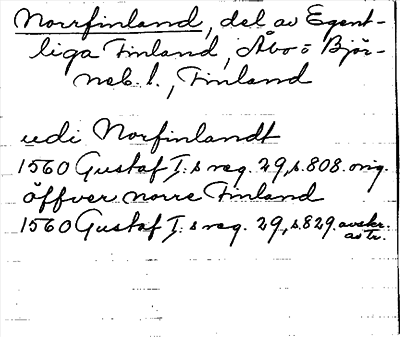 Norrfinland, del av Egent-
liga Finland, Åbo o Björ-
neb. l., Finland
udi Norfinlandt
1560 Gustaf I:s reg. 29, s. 808. orig.
öffver norre Finland
1560 Gustaf I:s reg. 29, s. 829. avskr.
av tr.